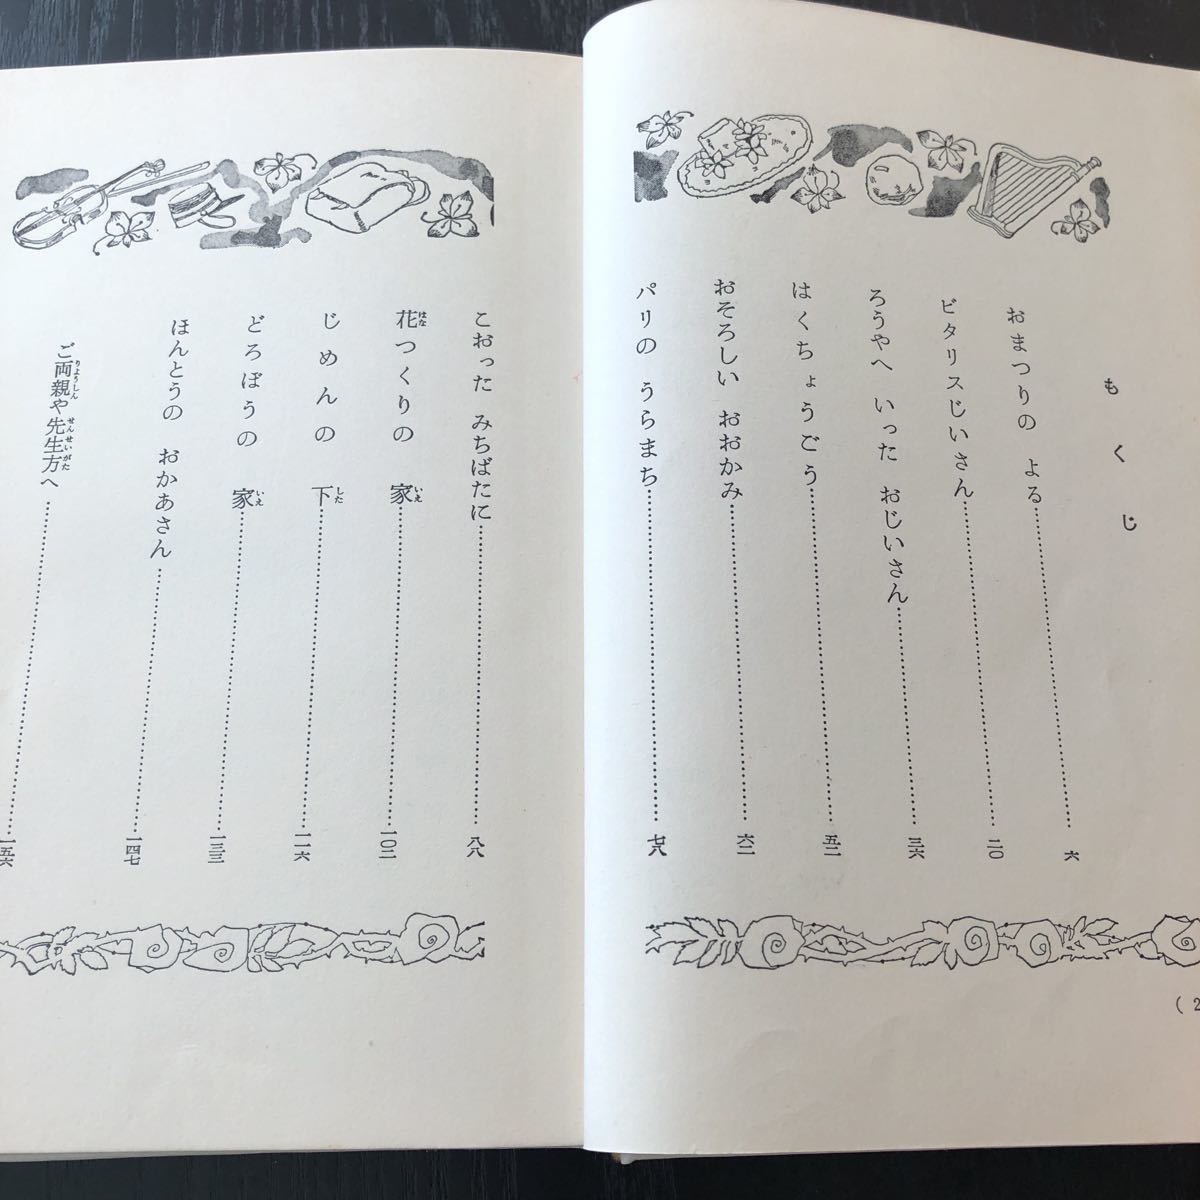 もくじ
おまつりの よる……六
ビタリスじいさん……二〇
ろうやへ いった おじいさん……三六
はくちょうごう……五二
おそろしい おおかみ……六二
パリの うらまち……七八
(2
こおった みちばたに……八八
花つくりの 家……一〇二
じめんの 下……一一六
どろぼうの 家……一三三
ほんとうの おかあさん……一四七
ご両親や先生方へ……一五六